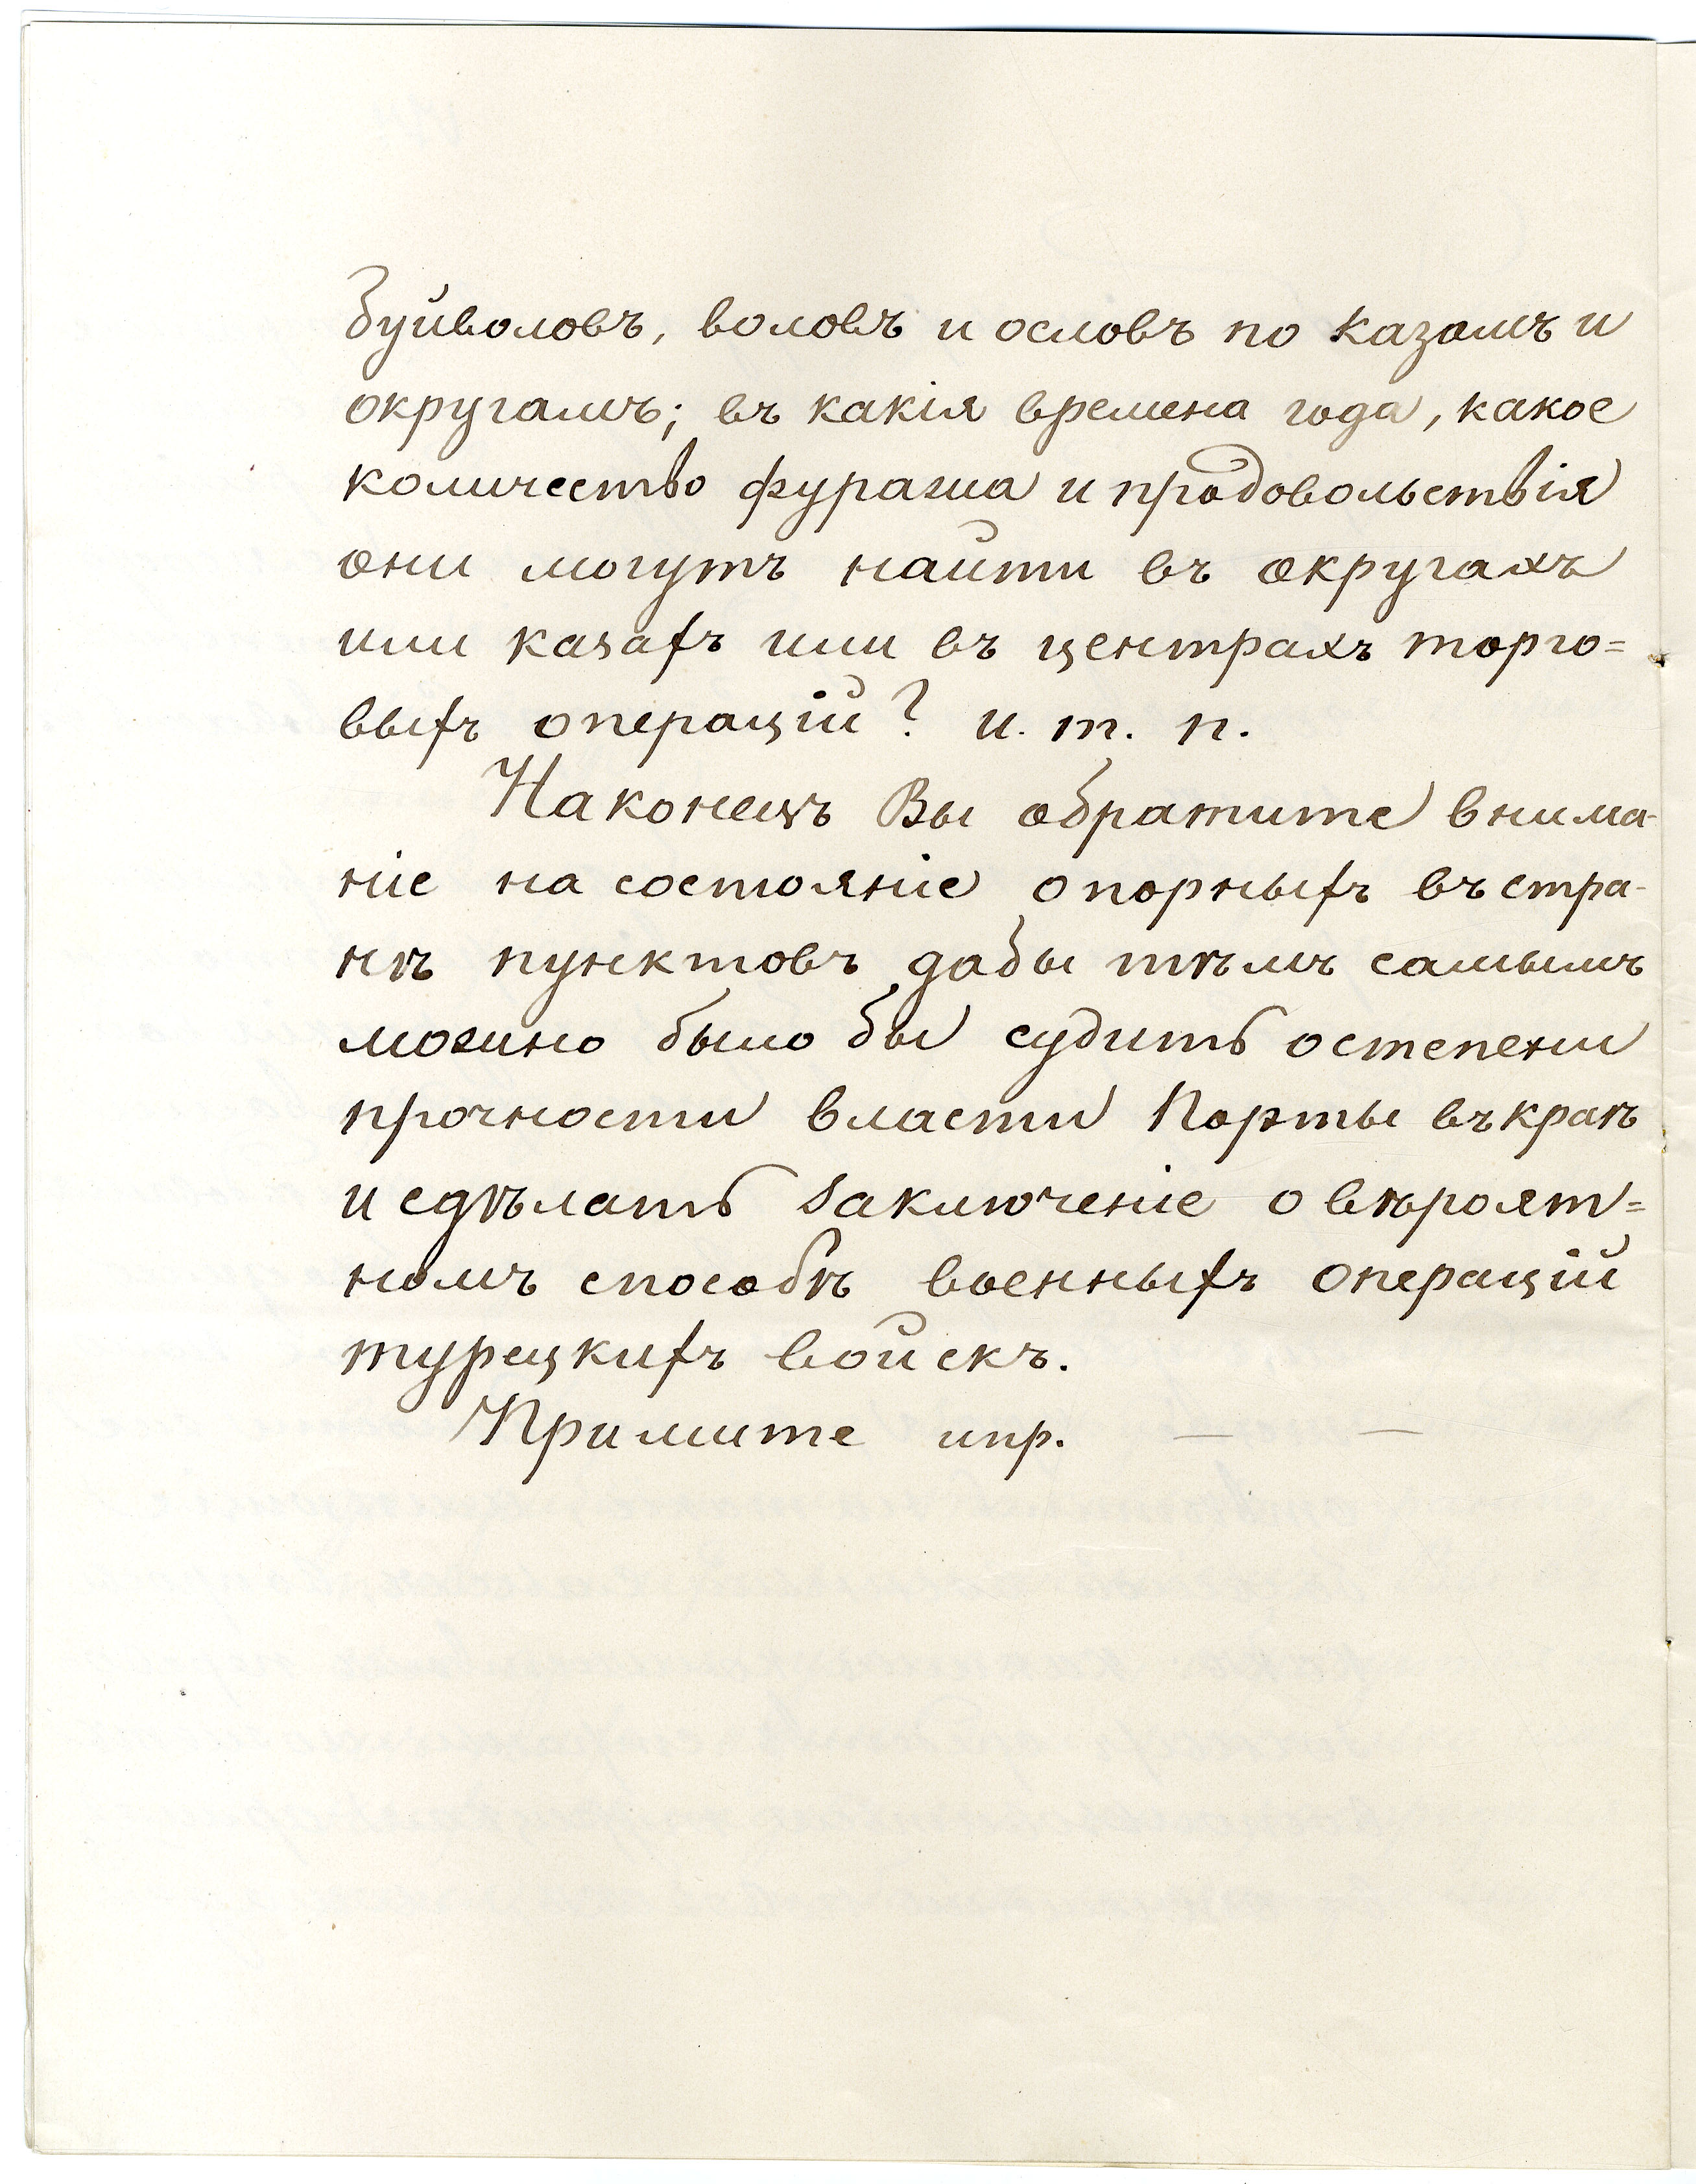 буйволовъ, воловъ и ословъ по казамъ и
округамъ; въ какія времена года, какое
количество фуража и продовольствія
они могутъ найти въ округахъ
или казахъ или въ центрахъ торго=
выхъ операцій? и. т. п.
Наконецъ Вы обратите внима-
ніе на состояніе опорныхъ въ стра-
нѣ пунктовъ дабы тѣмъ самымъ
можно было бы судить о степени
прочности власти Порты въ краѣ
и сдѣлать заключеніе о вѣроят=
номъ способѣ военныхъ операцій
турецкихъ войскъ.
Примите и пр. — —